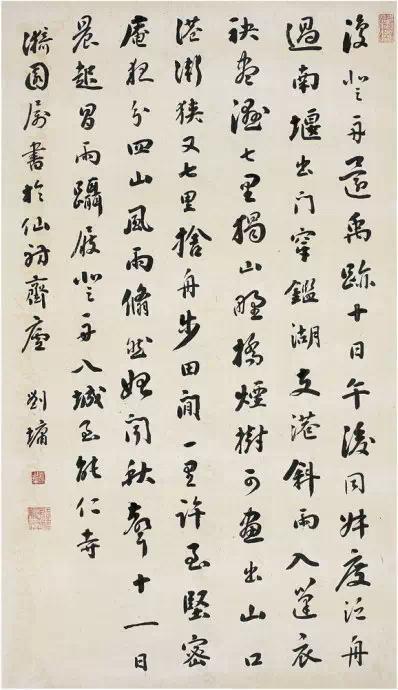 復登舟還禹跡十日午後同度泛舟
過南堰出門穿鑑湖支港斜雨入篷衣
袂盡濕七里獨山野橋煙樹可畫出山口
港漸狹又七里捨舟步田間一里許至堅密
庵夜分四山風雨翛然始聞秋聲十一日
晨起冒雨躡屐登舟入城至能仁寺
漪園屬書於仙舫齋 劉墉